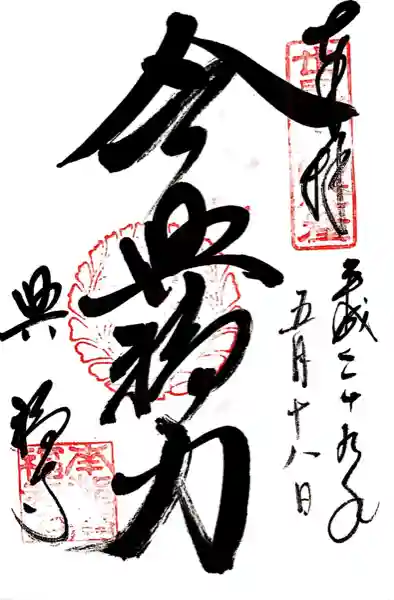 奉拝
平成二十九年
五月十八日
令興福力
興福寺